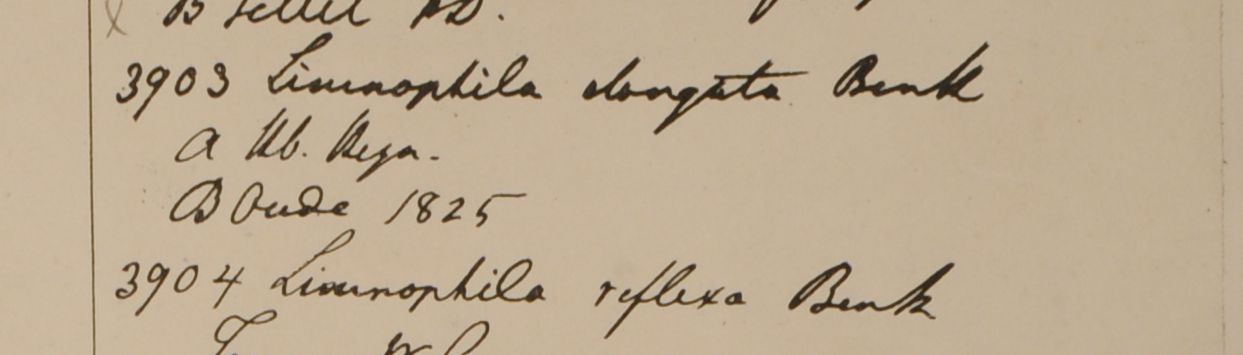 3903 Limnophila elongata Benth
A Hb. Heyn.
B Oude 1825
3904 Limnophila reflexa Benth